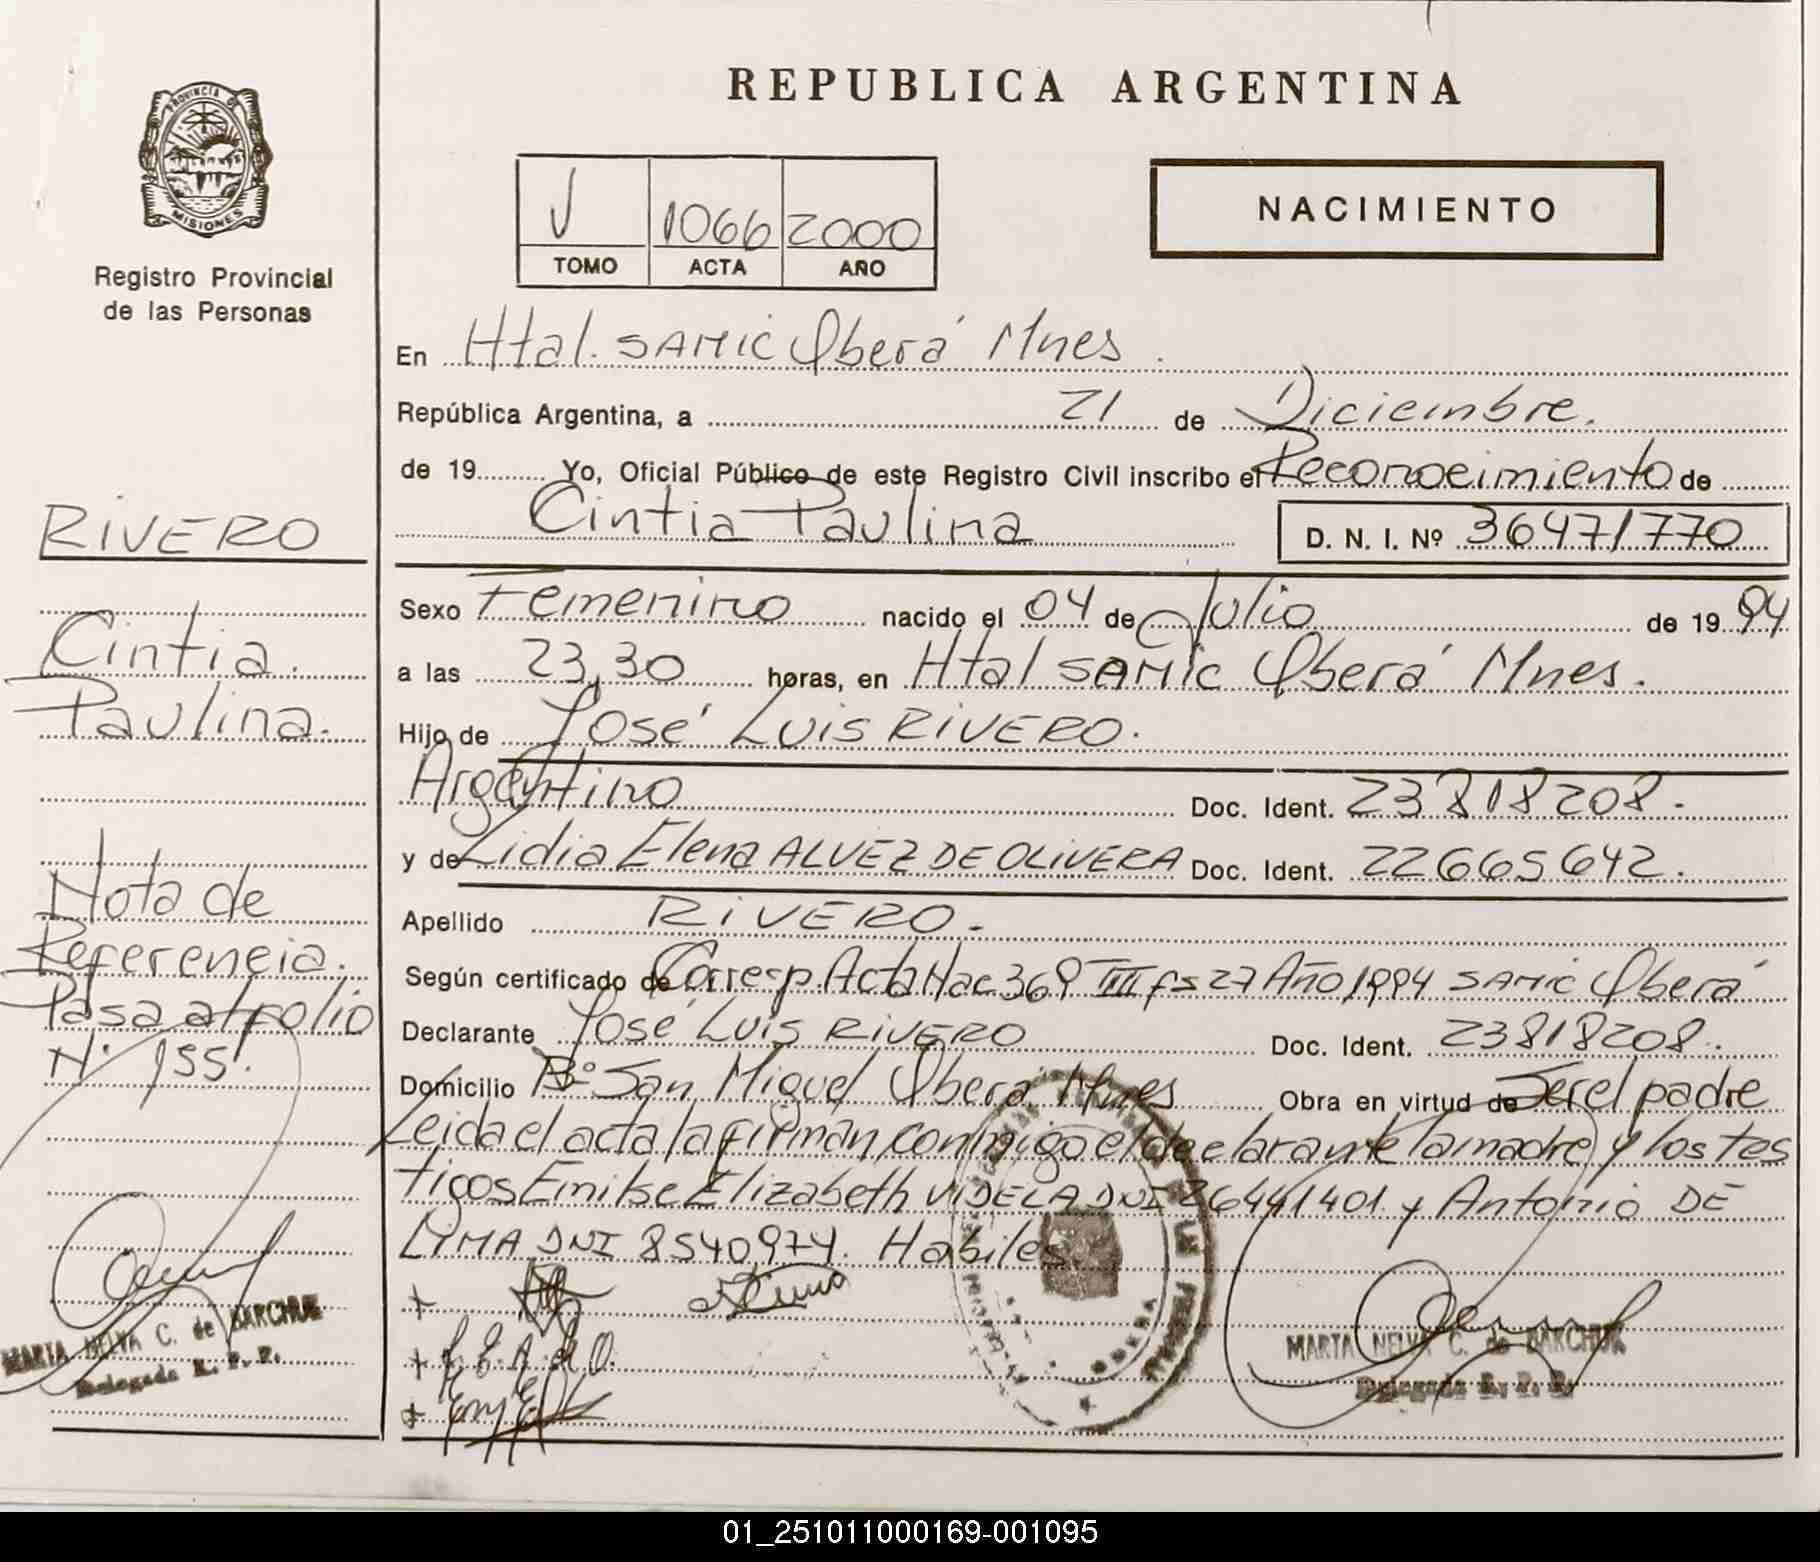 REPUBLICA ARGENTINA
PROVINCIA DE
MISIONES
Registro Provincial
de las Personas
V 1066 2000
TOMO ACTA AÑO
NACIMIENTO
En Htal. SAMIC Oberá Mnes.
República Argentina, a 21 de Diciembre.
de 19 Yo, Oficial Público de este Registro Civil inscribo el Reconocimiento de
Cintia Paulina D. N. I. Nº 36471770
Sexo Femenino nacido el 04 de Julio de 19 94
a las 23,30 horas, en Htal SAMIC Oberá Mnes.
Hijo de José Luis RIVERO.
Argentino Doc. Ident. 23818208.
y de Lidia Elena ALVEZ DE OLIVERA Doc. Ident. 22665642.
Apellido RIVERO.
Según certificado de Corresp. Acta Nac 369 TIII fs 27 Año 1994 SAMIC Oberá
Declarante José Luis RIVERO Doc. Ident. 23818208.
Domicilio Bº San Miguel Oberá Mnes Obra en virtud de Ser el padre
Leida el acta la firman conmigo el declarante la madre y los tes
tigos Elizabeth VIDELA DNI 26441401 y Antonio DE
LIMA DNI 8540974. Habiles.
RIVERO
Cintia
Paulina.
Nota de
Referencia.
Pasa al folio
Nº 155.
MARTA NELVA C. de BARCHUK
Delegada R. P. P.
OBERA
MARTA NELVA C. de BARCHUK
Delegada R. P. P.
01_251011000169-001095